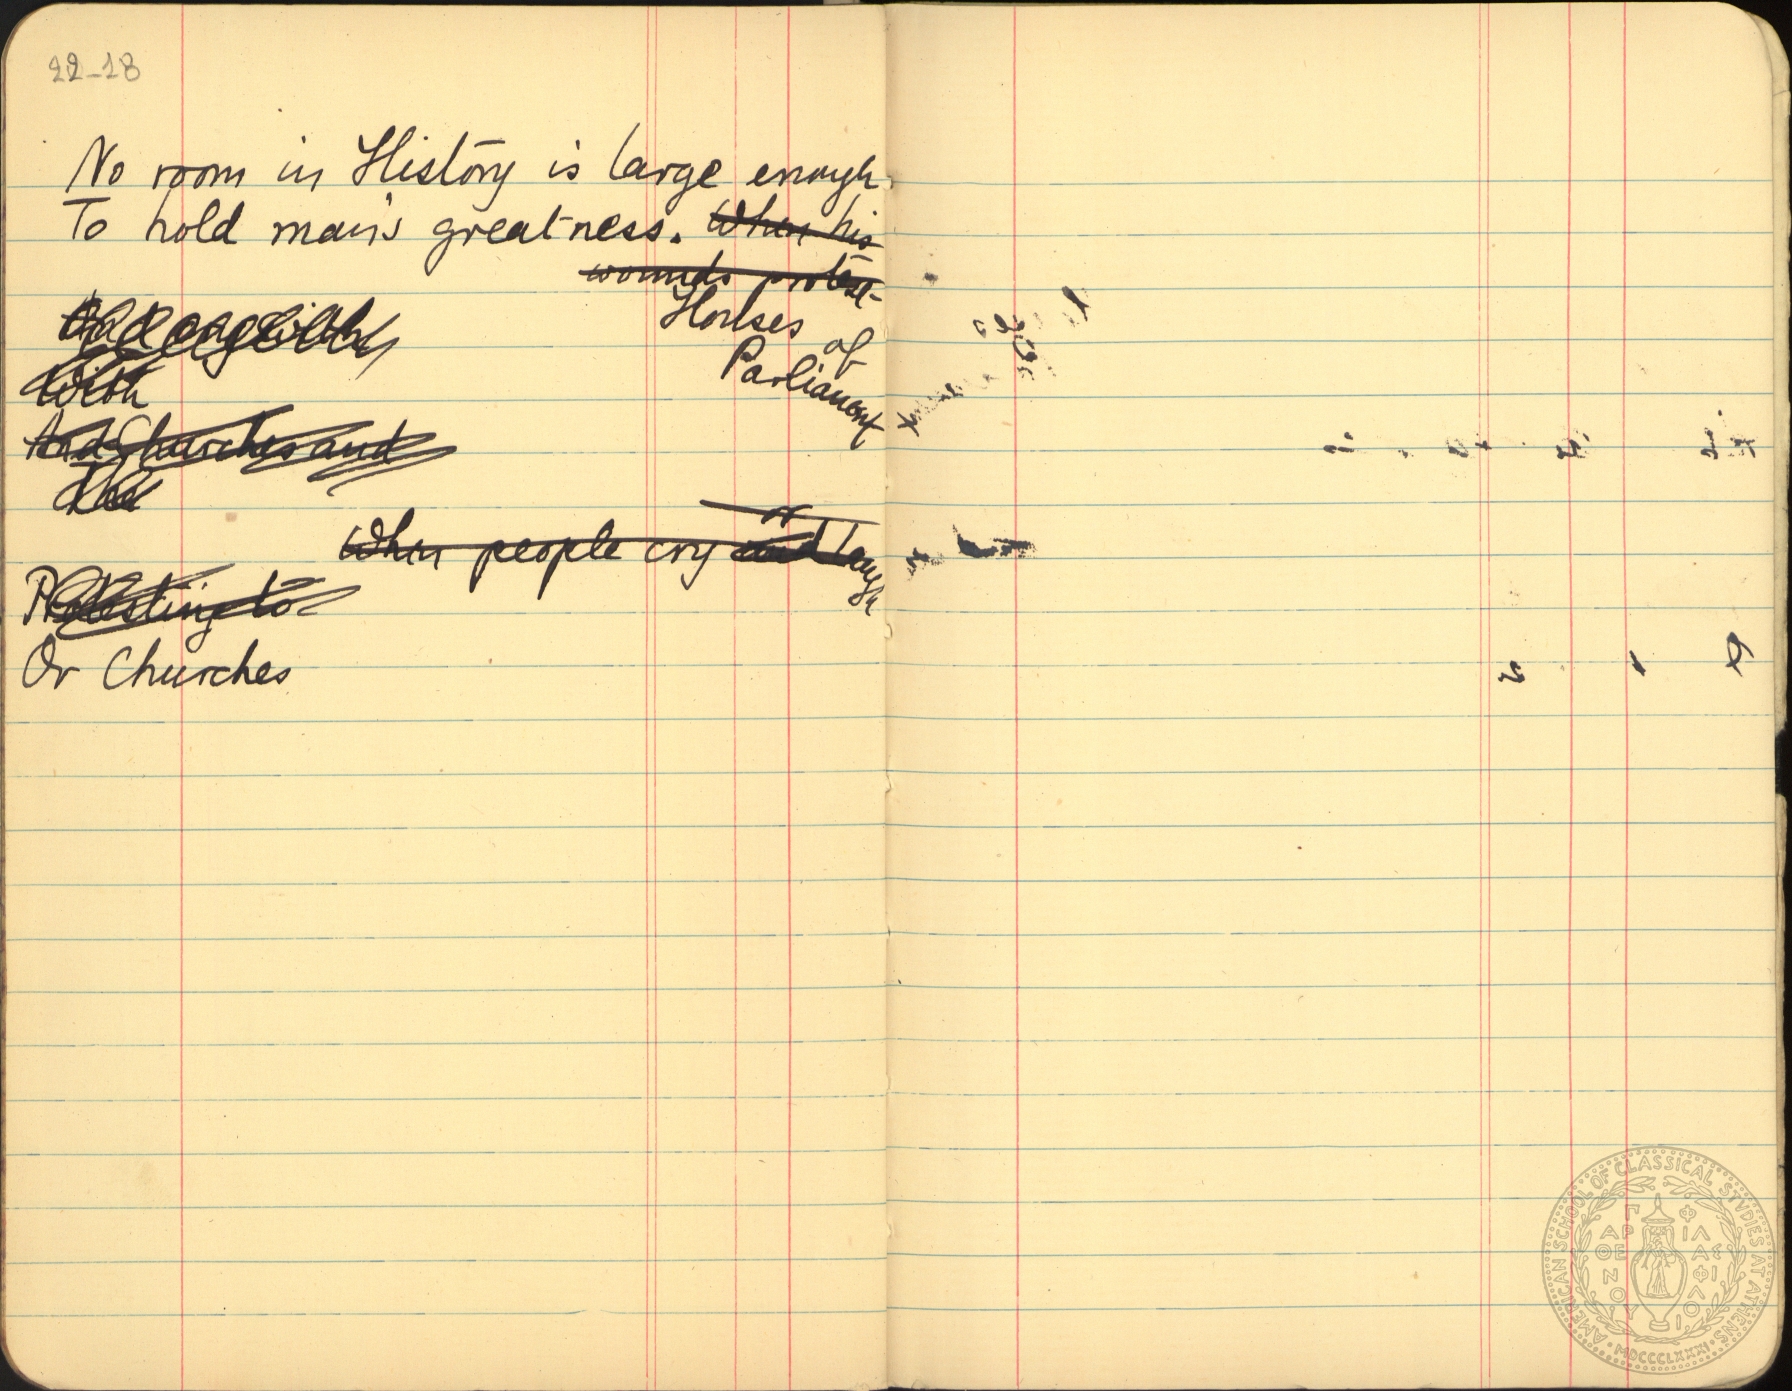 22-18
No room in History is large enough
To hold man's greatness. When his
wounds protest
Houses
of
Parliament
With
And Churches and
The
or
When people cry and laugh
Protesting to
Or Churches
AMERICAN SCHOOL OF CLASSICAL STUDIES AT ATHENS
ΠΑΡΘΕΝΟΥ ΦΙΛΑΣ ΦΙΛΟΙ
MDCCCLXXXI